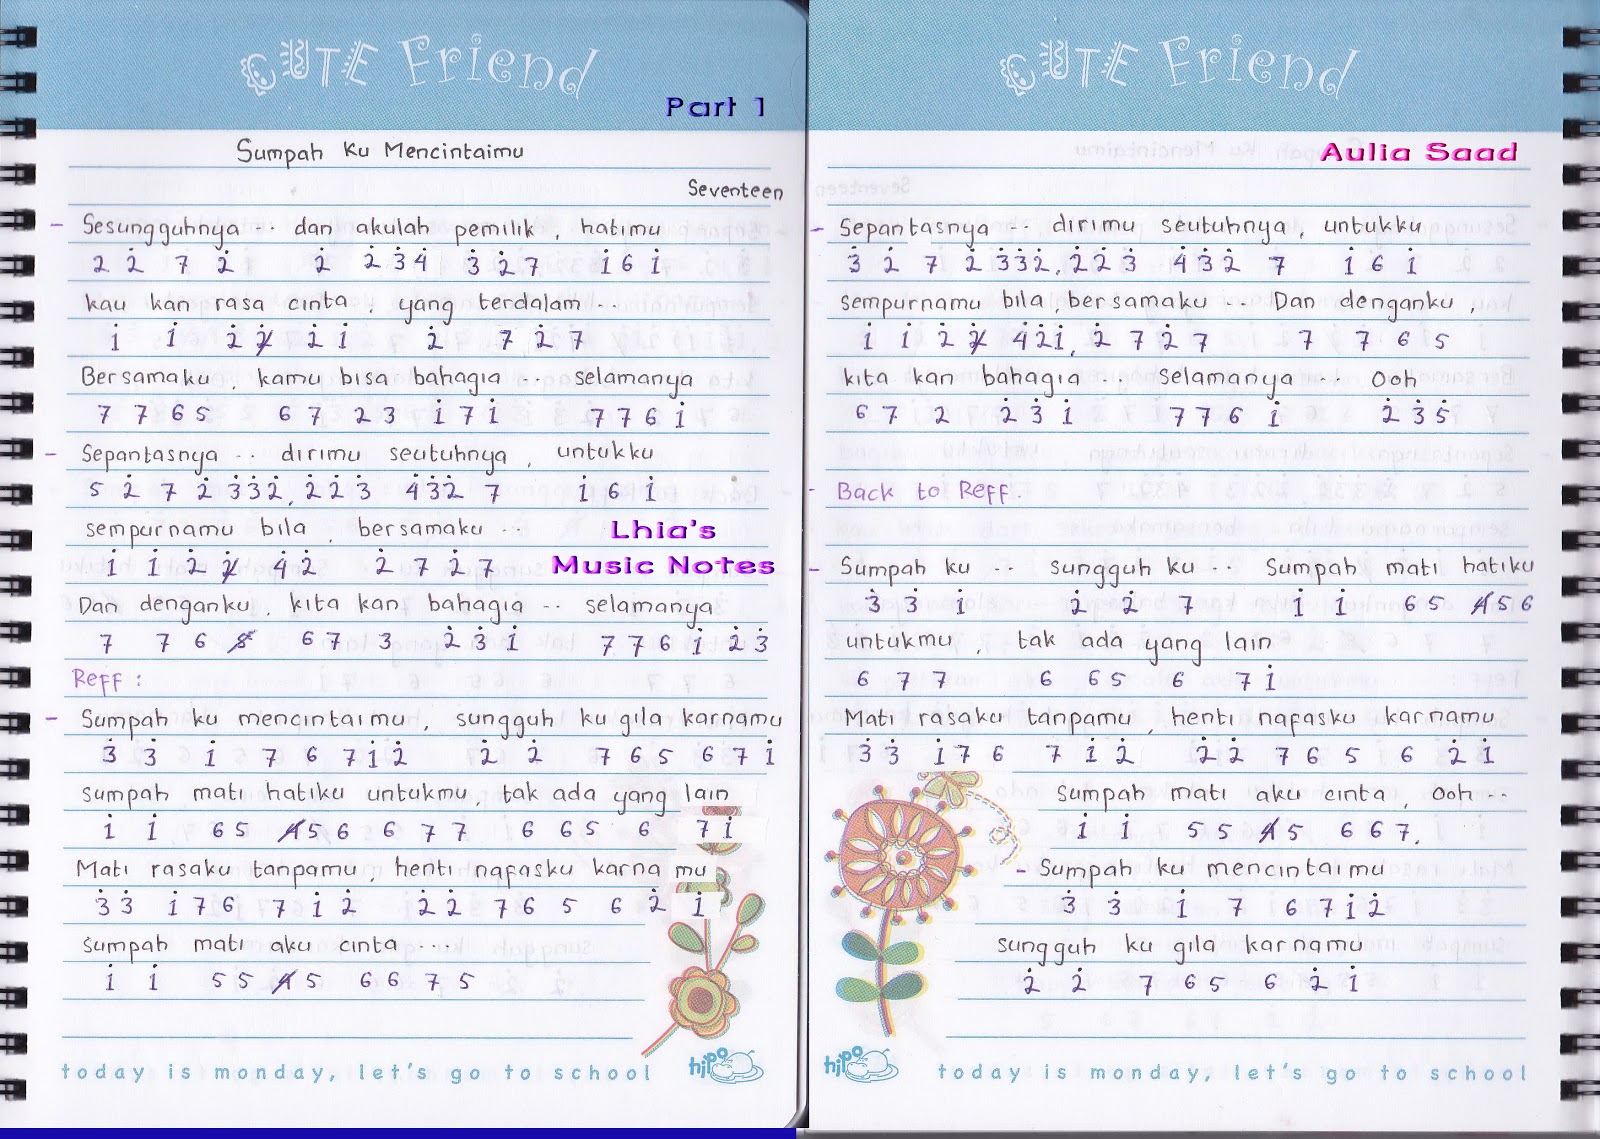 CUTE Friend
Part 1
Sumpah Ku Mencintaimu
Seventeen
- Sesungguhnya -- dan akulah pemilik, hatimu
2̇ 2̇ 7 2̇ 2̇ 2̇ 3̇ 4̇ 3̇ 2̇ 7 1̇ 6 1̇
kau kan rasa cinta, yang terdalam --
1̇ 1̇ 2̇ 2̸̇ 2̇ 1̇ 2̇ 7 2̇ 7
Bersamaku, kamu bisa bahagia -- selamanya
7 7 6 5 6 7 2̇ 3̇ 1̇ 7 1̇ 7 7 6 1̇
- Sepantasnya -- dirimu seutuhnya, untukku
5 2̇ 7 2̇ 3̇3̇2̇, 2̇ 2̇ 3̇ 4̇3̇2̇ 7 1̇ 6 1̇
sempurnamu bila, bersamaku --
1̇ 1̇ 2̇ 2̸̇ 4̇2̇ 2̇ 7 2̇ 7
Lhia's
Music Notes
Dan denganku, kita kan bahagia -- selamanya
7 7 6 5̸ 6 7 3 2̇ 3̇ 1̇ 7 7 6 1̇ 2̇ 3̇
Reff :
- Sumpah ku mencintaimu, sungguh ku gila karnamu
3̇ 3̇ 1̇ 7 6 7 1̇ 2̇ 2̇ 2̇ 7 6 5 6 7 1̇
sumpah mati hatiku untukmu, tak ada yang lain
1̇ 1̇ 6 5 4̸ 5 6 6 7 7 6 6 5 6 7 1̇
Mati rasaku tanpamu, henti nafasku karna mu
3̇ 3̇ 1̇ 7 6 7 1̇ 2̇ 2̇ 2̇ 7 6 5 6 2̇ 1̇
sumpah mati aku cinta ----
1̇ 1̇ 5 5 4̸ 5 6 6 7 5
today is monday, let's go to school
hipo
CUTE Friend
Aulia Saad
- Sepantasnya -- dirimu seutuhnya, untukku
3̇ 2̇ 7 2̇ 3̇3̇2̇, 2̇ 2̇ 3̇ 4̇3̇2̇ 7 1̇ 6 1̇
sempurnamu bila, bersamaku -- Dan denganku,
1̇ 1̇ 2̇ 2̸̇ 4̇2̇1̇, 2̇ 7 2̇ 7 7 7 6 5
kita kan bahagia -- selamanya -- Ooh
6 7 2 2̇ 3̇ 1̇ 7 7 6 1̇ 2̇ 3̇ 5̇
- Back to Reff.
- Sumpah ku -- sungguh ku -- Sumpah mati hatiku
3̇ 3̇ 1̇ 2̇ 2̇ 7 1̇ 1̇ 6 5 4̸ 5 6
untukmu, tak ada yang lain
6 7 7 6 6 5 6 7 1̇
Mati rasaku tanpamu, henti nafasku karnamu
3̇ 3̇ 1̇ 7 6 7 1̇ 2̇ 2̇ 2̇ 7 6 5 6 2̇ 1̇
Sumpah mati aku cinta, Ooh --
1̇ 1̇ 5 5 4̸ 5 6 6 7.
- Sumpah ku mencintaimu
3̇ 3̇ 1̇ 7 6 7 1̇ 2̇
sungguh ku gila karnamu
2̇ 2̇ 7 6 5 6 2̇ 1̇
hipo
today is monday, let's go to school